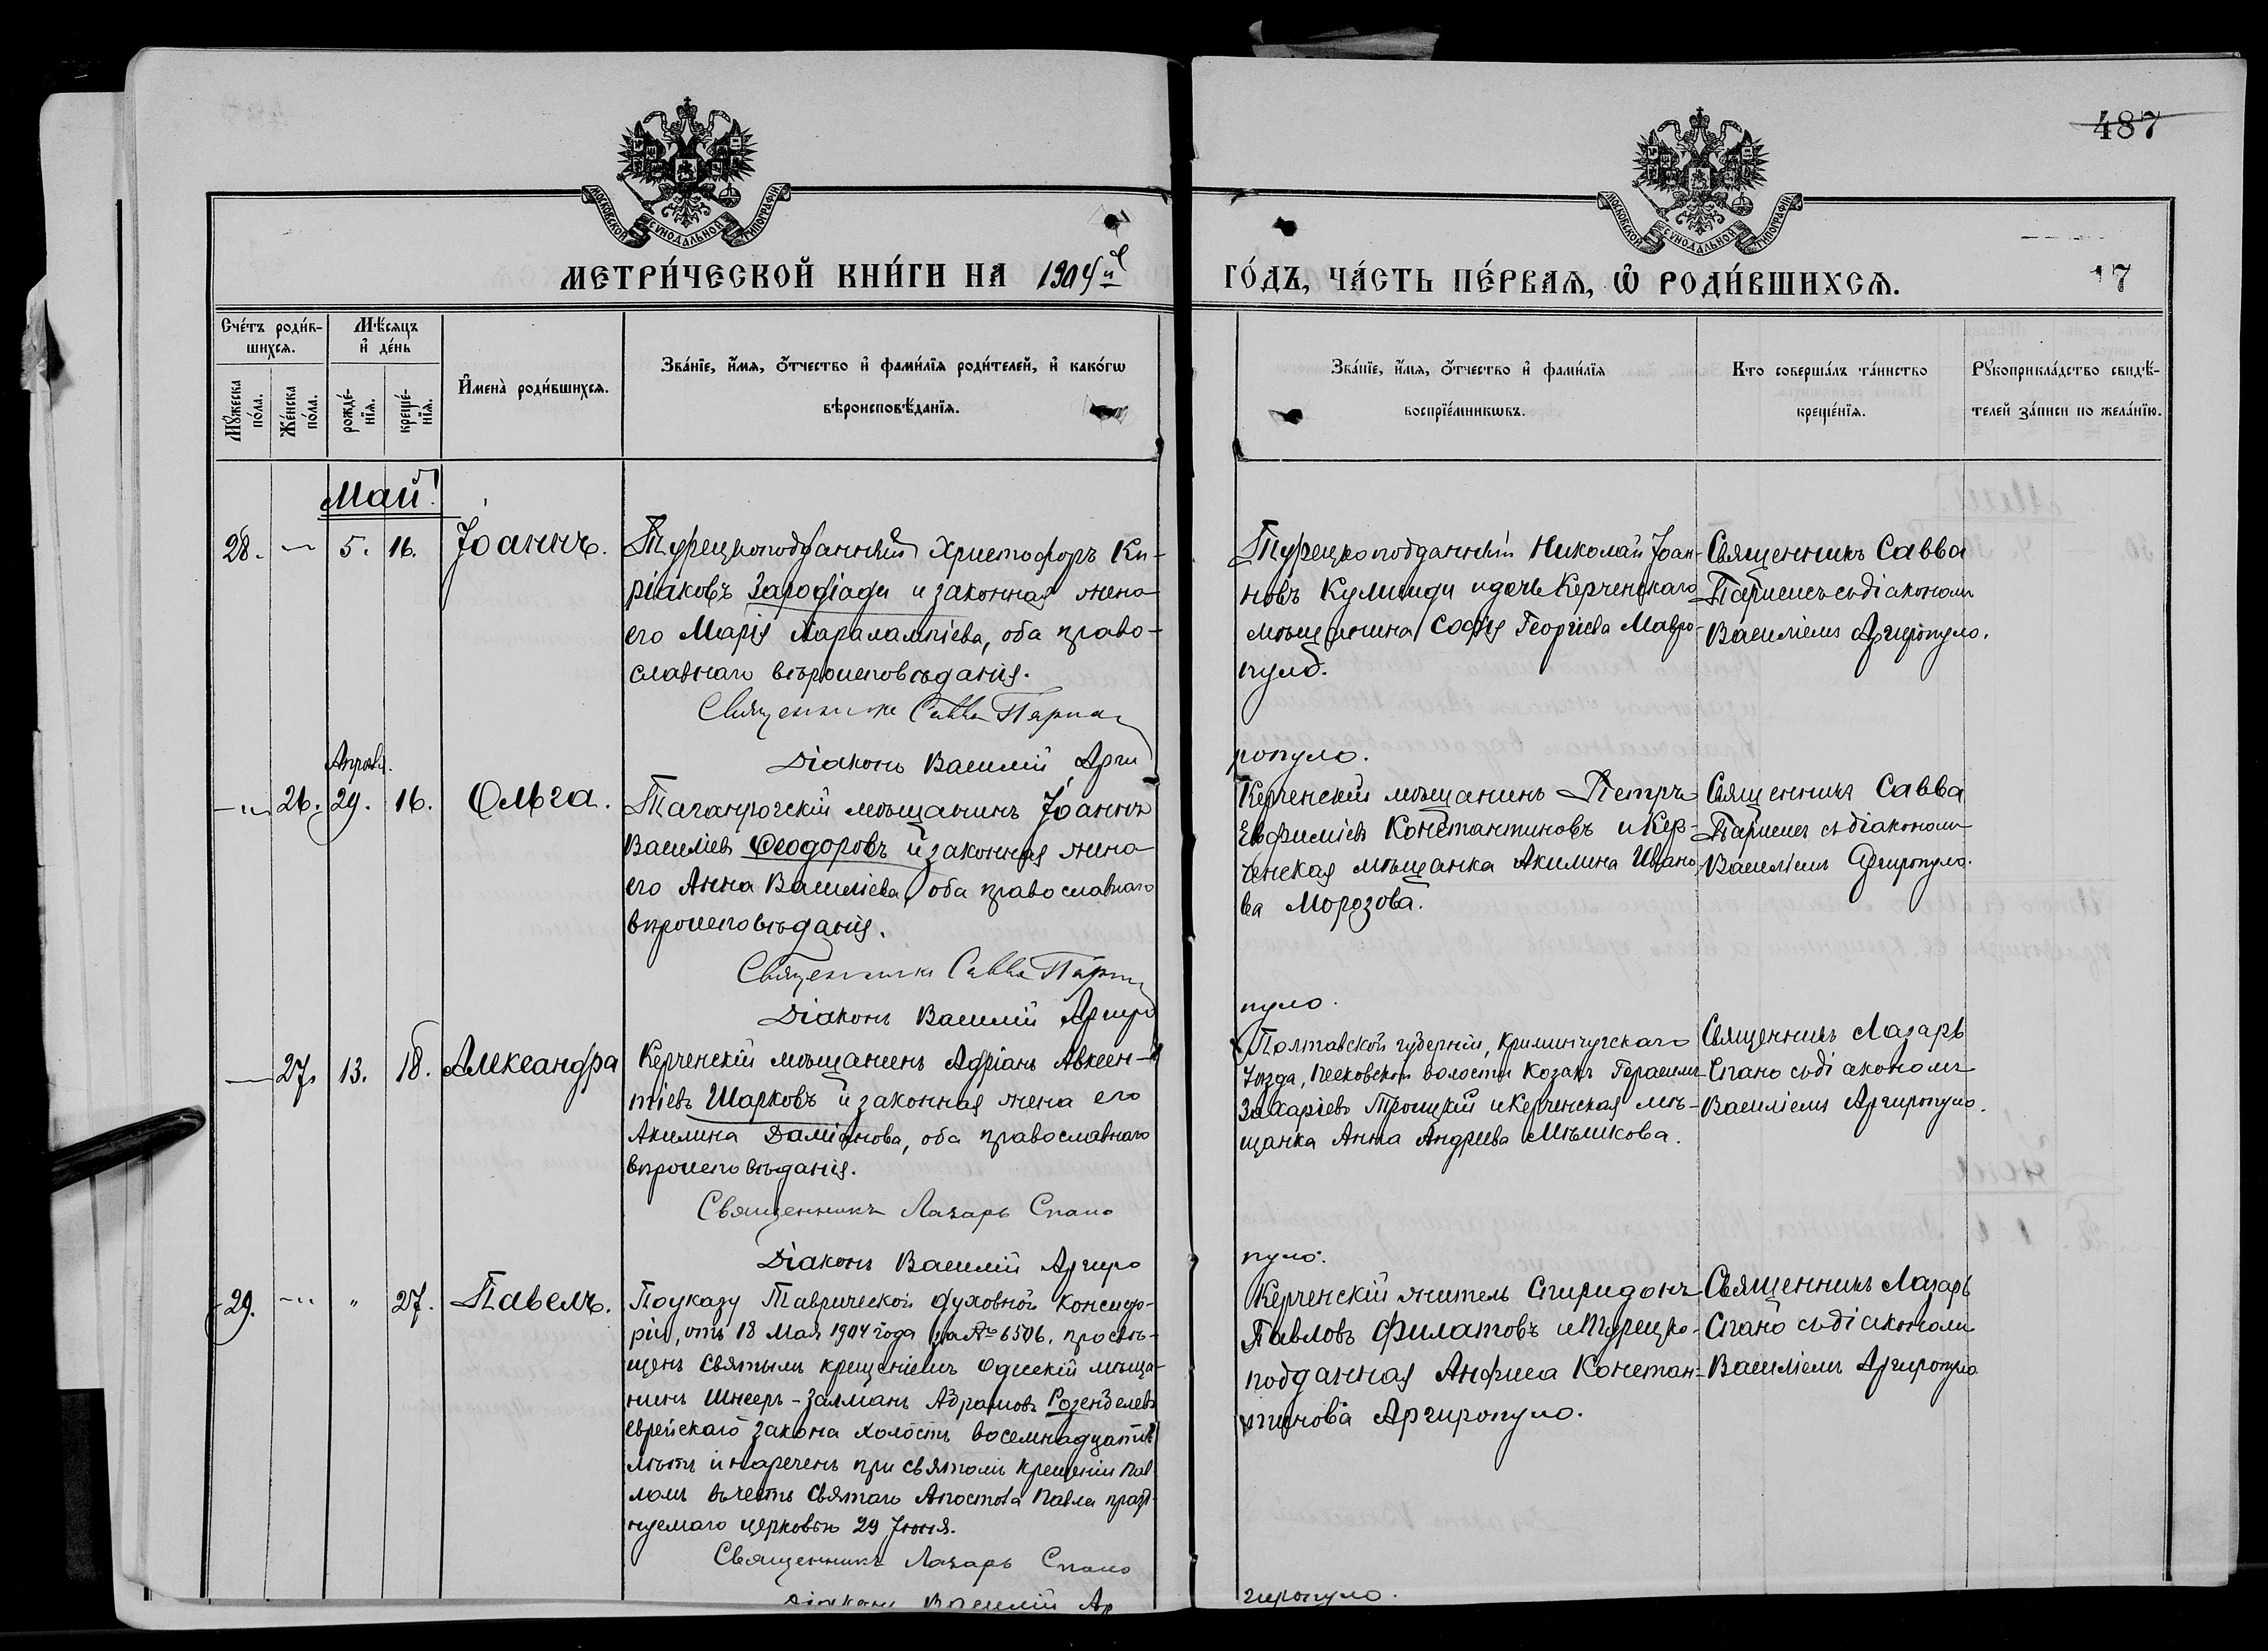 487
МОСКОВСКОЙ СѴНОДАЛЬНОЙ ТИПОГРАФІИ
МОСКОВСКОЙ СѴНОДАЛЬНОЙ ТИПОГРАФІИ
МЕТРИ́ЧЕСКОЙ КНИ́ГИ НА 1904й
ГО́ДЪ, ЧА́СТЬ ПЕ́РВАѦ, Ѡ РОДИ́ВШИХСѦ.
17
Сче́тъ роди́в-
шихсѧ.
Мѣ́сяцъ
и҆ де́нь
Мꙋ́жеска
по́ла.
Же́нска
по́ла.
рожде́-
нїѧ.
креще́-
нїѧ.
И҆мена̀ роди́вшихсѧ.
Зва́нїе, и҆́мѧ, ѻ҆́тчество и҆ фами́лїѧ роди́телей, и҆ како́гѡ
вѣроисповѣ́данїѧ.
Зва́нїе, и҆́мѧ, ѻ҆́тчество и҆ фами́лїѧ
воспрїе́мникѡвъ.
Кто соверша́лъ та́инство
креще́нїѧ.
Рꙋкоприкла́дство свидѣ́-
телей за́писи по жела́нїю.
Май!
28. — 5. 16. Іоаннъ.
Турецкоподданный Христофоръ Ки-
ріаковъ Зародіади и законная жена
его Марія Харалампіева, оба право-
славнаго вѣроисповѣданія.
Священникъ Савва
Діаконъ Василій Арги
Турецкоподданный Николай Іоан-
новъ Кулиди и дочь Керченскаго
мѣщанина Софія Георгіева Мавро-
пуло.
ропуло.
Священникъ Савва
съ діакономъ
Василіемъ Аргиропуло.
Апрѣля.
—"— 26. 29. 16. Ольга.
Таганрогскій мѣщанинъ Іоаннъ
Василіевъ Ѳеодоровъ и законная жена
его Анна Василіева, оба православнаго
вѣроисповѣданія.
Священникъ Савва
Діаконъ Василій Аргиро
Керченскій мѣщанинъ Петръ
Евфиміевъ Константиновъ и Кер-
ченская мѣщанка Акилина Ивано
ва Морозова.
пуло.
Священникъ Савва
съ діакономъ
Василіемъ Аргиропуло.
— 27. 13. 18. Александра
Керченскій мѣщанинъ Адріанъ Авксен-
тіевъ Шарковъ и законная жена его
Акилина Даміанова, оба православнаго
вѣроисповѣданія.
Священникъ Лазарь Спано
Діаконъ Василій Аргиро
Полтавской губерніи, Криминчугскаго
Уѣзда, Песковской волости Козакъ Герасимъ
Захаріевъ Троицкій и Керченская мѣ-
щанка Анна Андреева Мѣшкова.
пуло.
Священникъ Лазарь
Спано съ діакономъ
Василіемъ Аргиропуло.
29. —"— " 27. Павелъ.
По указу Таврической Духовной Консисто-
ріи, отъ 18 Мая 1904 года за № 6506, просвѣ-
щенъ Святымъ крещеніемъ Одесскій мѣща-
нинъ Шнееръ-Залманъ Абрамовъ Розенбелевъ
еврейскаго закона холостъ восемнадцати
лѣтъ и нареченъ при святомъ крещеніи Пав-
ломъ въ честь Святаго Апостола Павла празд-
нуемаго церковью 29 Іюня.
Священникъ Лазарь Спано
Діаконъ Василій Ар
Керченскій житель Спиридонъ
Павловъ Филатовъ и Турецко-
подданная Анфиса Констан-
тинова Аргиропуло.
гиропуло.
Священникъ Лазарь
Спано съ діакономъ
Василіемъ Аргиропуло